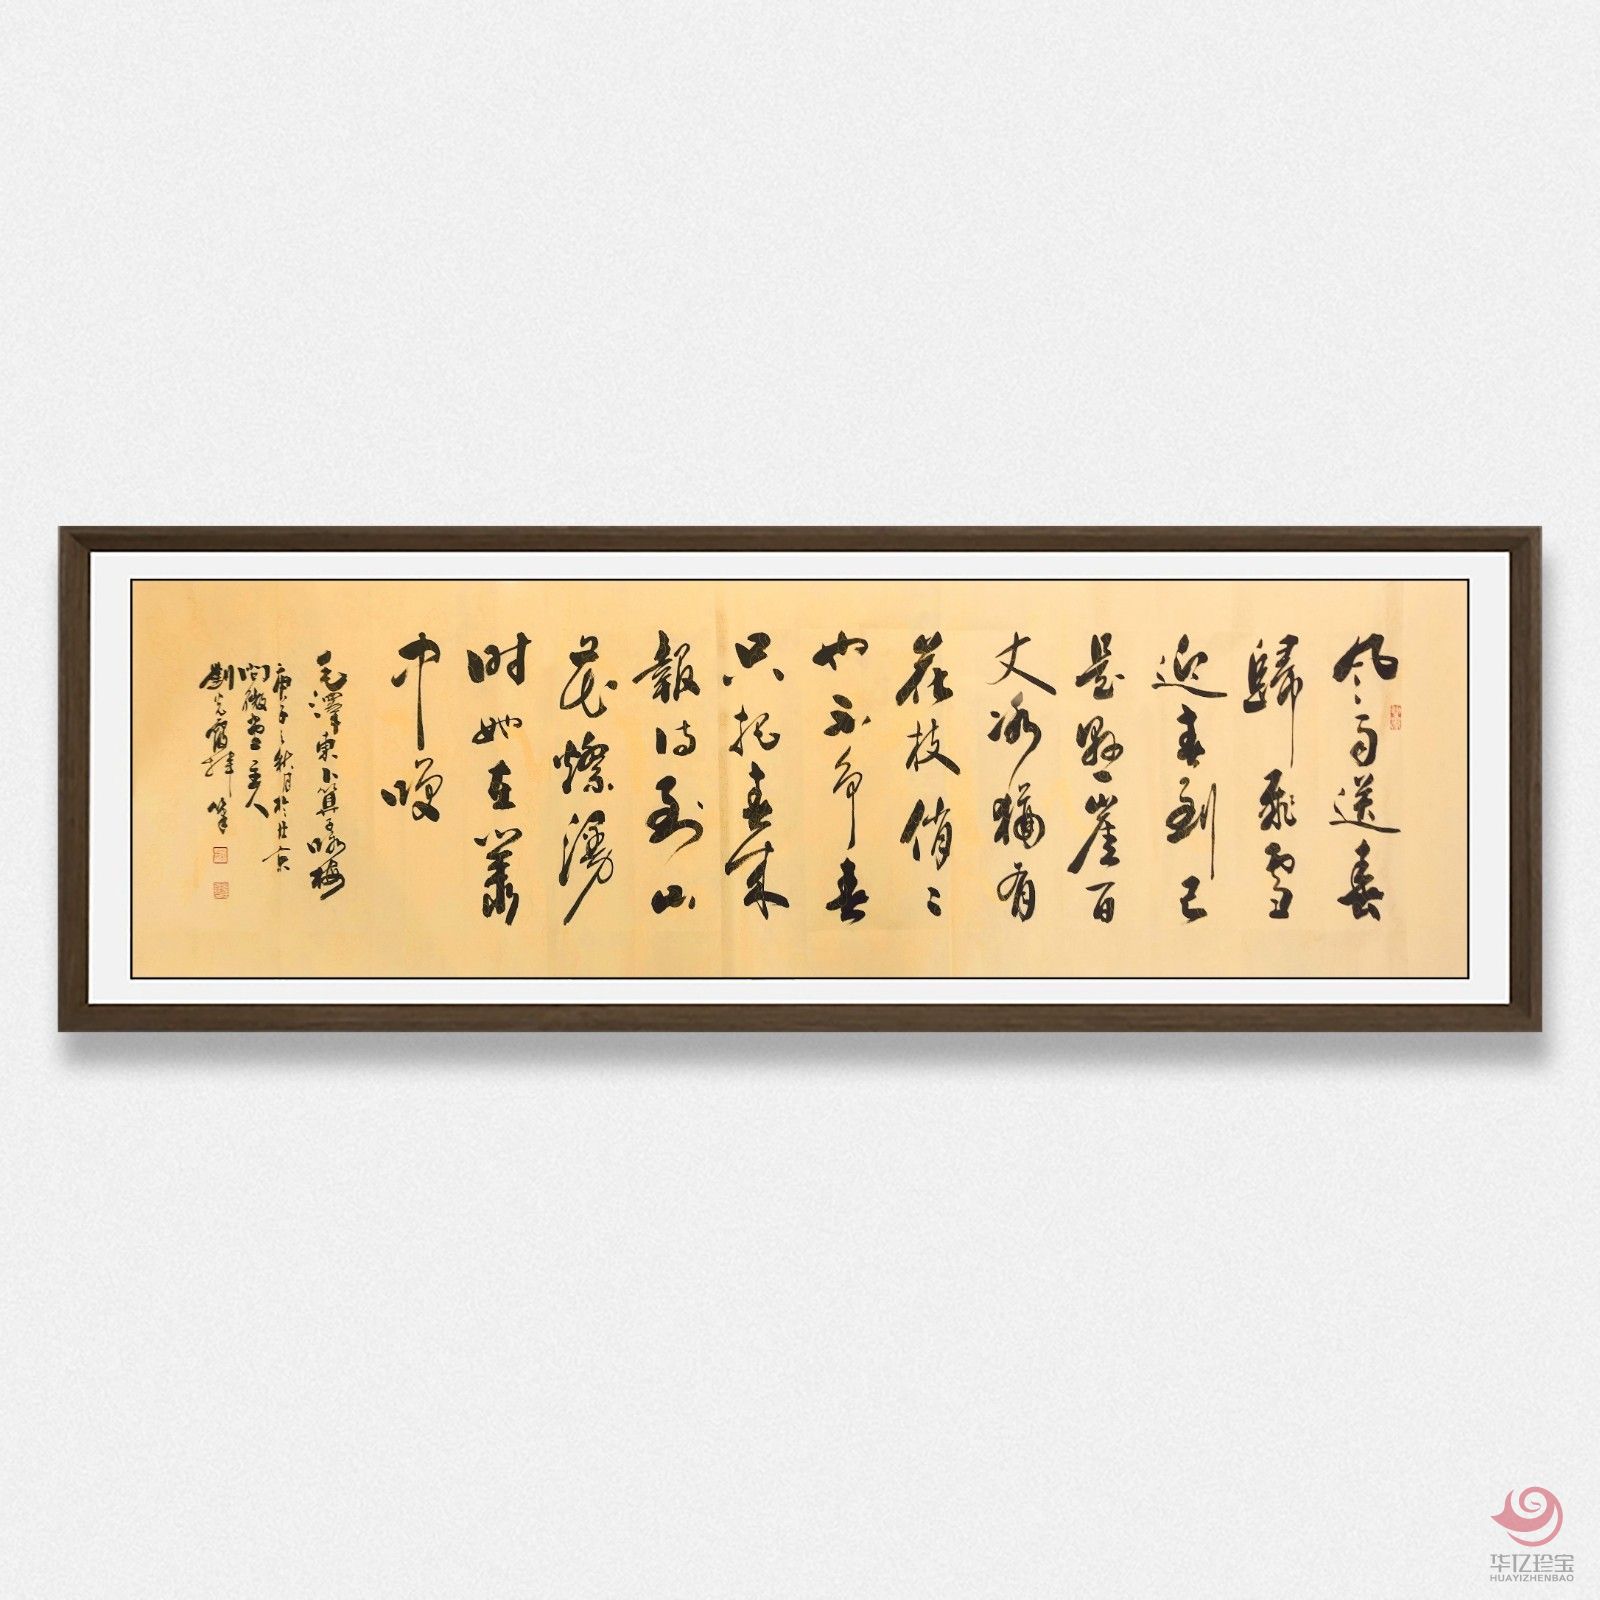 风雨送春
歸飛雪
迎春到已
是懸崖百
丈冰猶有
花枝俏〻
也不争春
只把春来
報待到山
花燦漫
时她在叢
中咲
毛澤東卜算子咏梅
庚子之秋月於北京
问微堂主人
劉光霞
华亿珍宝
HUAYIZHENBAO